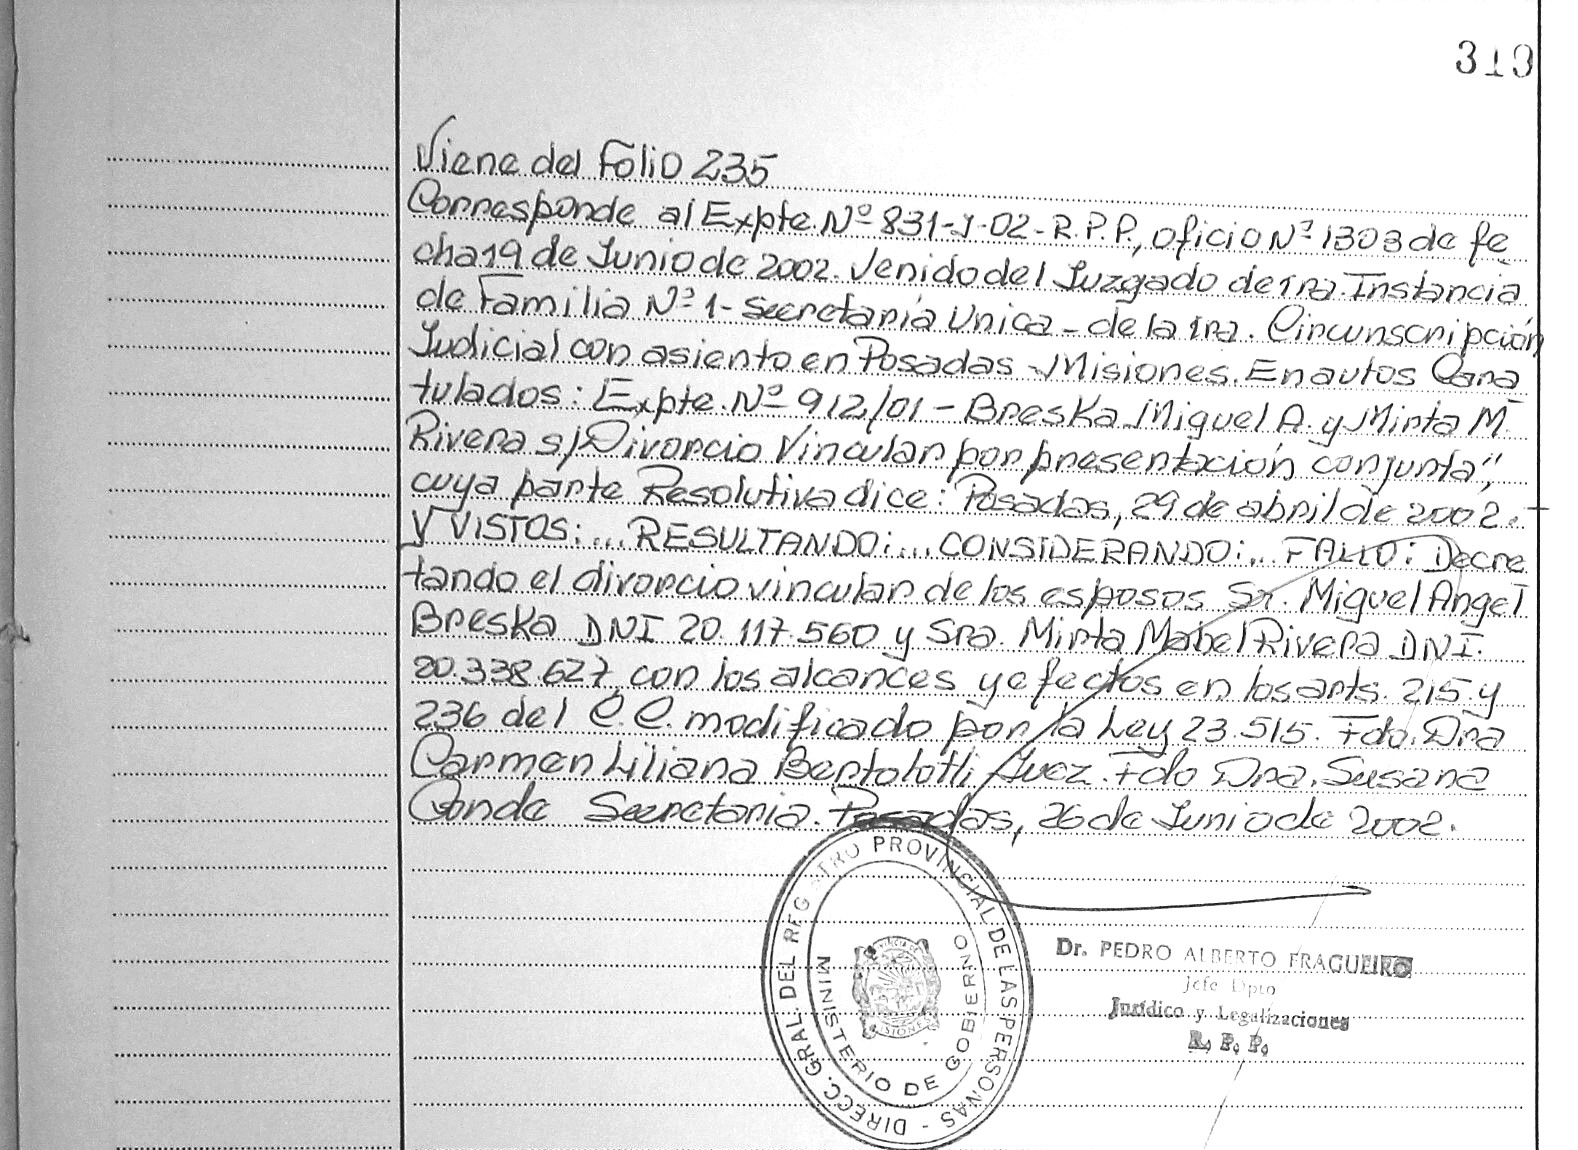 319
Viene del Folio 235
Corresponde al Expte. Nº 831-J-02-R.P.P., oficio Nº 1303 de fe
cha 19 de Junio de 2002. Venido del Juzgado de 1ra. Instancia
de Familia Nº 1 - Secretaría Unica - de la 1ra. Circunscripción
Judicial con asiento en Posadas - Misiones. En autos Cara
tulados: Expte. Nº 912/01 - Breska Miguel A. y Mirta M.
Rivera s/Divorcio Vincular por presentación conjunta",
cuya parte Resolutiva dice: Posadas, 29 de abril de 2002. -
Y VISTOS:... RESULTANDO:... CONSIDERANDO:... FALLO: Decre
tando el divorcio vincular de los esposos Sr. Miguel Angel
Breska DNI 20.117.560 y Sra. Mirta Mabel Rivera DNI.
20.338.627 con los alcances y efectos en los arts. 215 y
236 del C.C. modificado por la Ley 23.515. Fdo. Dra
Carmen Liliana Bertolotti Juez. Fdo Dra. Susana
Conde Secretaria. Posadas, 26 de Junio de 2002.
DIRECC. GRAL. DEL REGISTRO PROVINCIAL DE LAS PERSONAS -
MINISTERIO DE GOBIERNO
Dr. PEDRO ALBERTO FRAGUEIRO
Jefe Dpto
Jurídico y Legalizaciones
R. P. P.